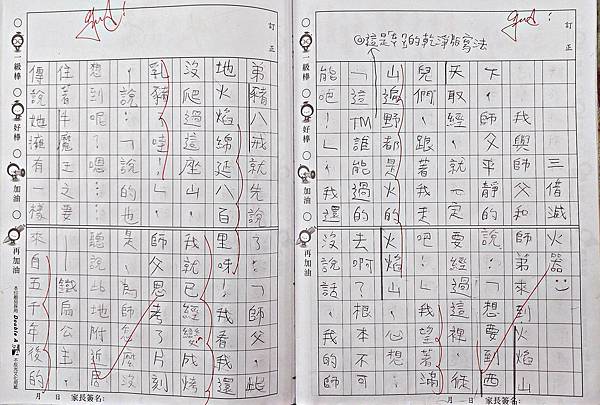 訂正
三借滅火器
我與師父和師弟來到火焰山
下，師父平靜的說：「想要到西
天取經，就一定要經過這裡，從
兒們，跟著我走吧！」我望著滿
山遍野都是火的火焰山，心想：
「TM誰能過的去啊？根本不可
能吧！」我還沒說話，我的師
的乾淨版寫法
good!
一級棒
好棒
加油
再加油
月 日 家長簽名：
訂正
弟豬八戒就先說了：「師父，此
地火焰綿延八百里呀！我看我還
沒爬過這座山，我就已經變成烤
乳豬了哇！」師父思考了片刻
，說：「說的也是，為怎麼沒
想到呢？嗯⋯⋯聽說此地附近居
住著牛魔王之妻——鐵扇公主，
傳說她擁有一樣來自五千年後的
good!
一級棒
好棒
加油
再加油
Double A
月 日 家長簽名：